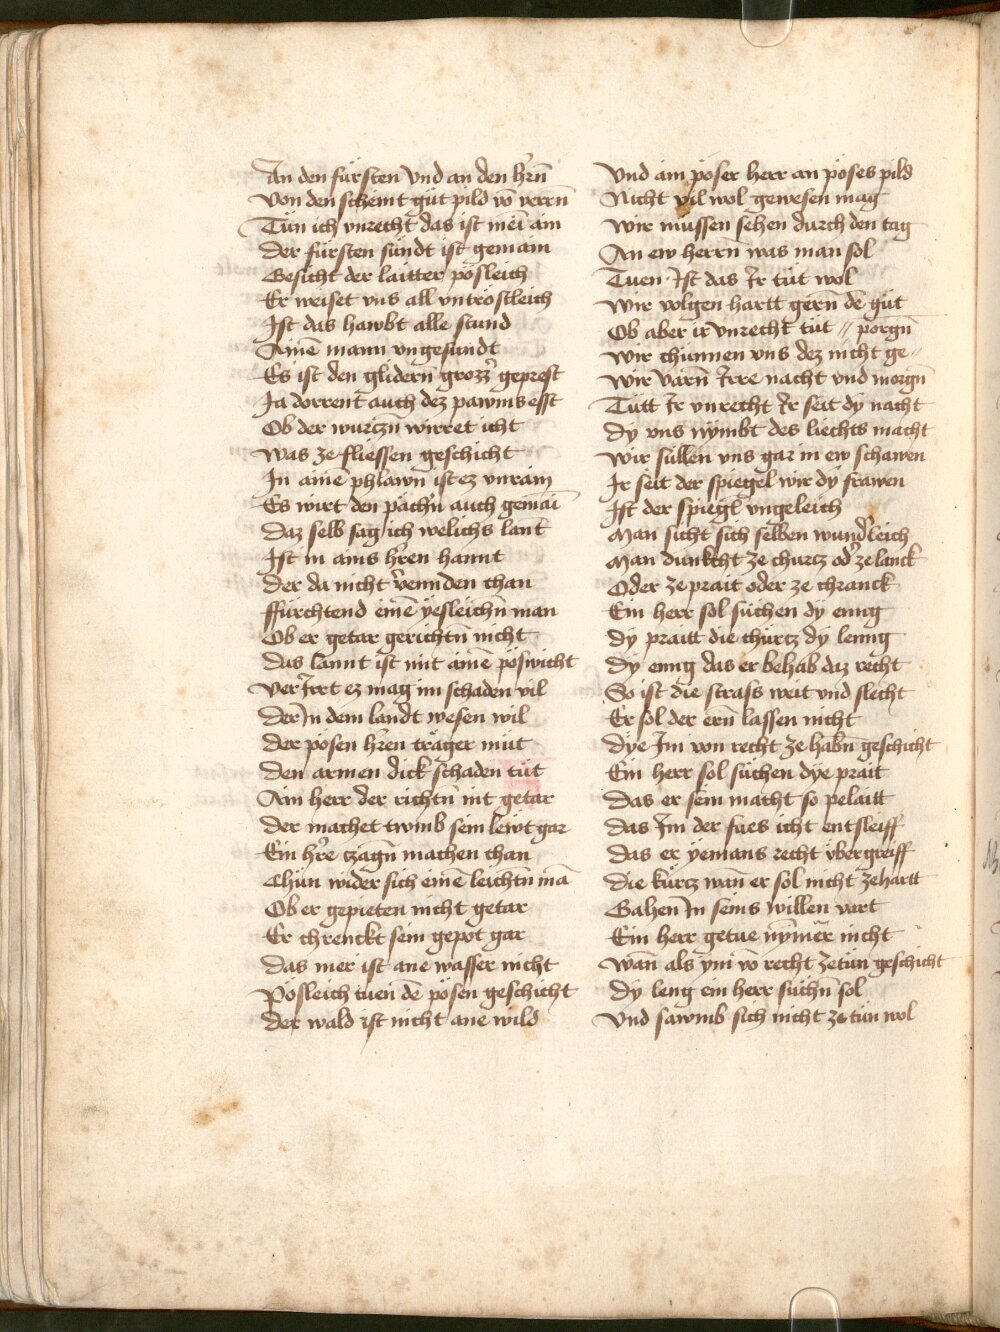 An den fürsten vnd an den hr̄n
Von den scheint güt pild vō verrn̄
Tün ich vnrecht das ist mei᷑ ain
Der fürsten sündt ist gemain
Gesicht der laitter pösleich
Er weiset vns all vntröstleich
Ist das hawbt alle stund
Ainē mann vngesundt
Es ist den glidern̄ grozz᷑ geprest
Ja dorrent auch dez pawms esst
Ob der wurczn̄ wirret icht
Was ze fliessen geschicht
In aine phlawn̄ ist ez vnrain
Es wirt den pächn̄ auch gemai᷑
Daz selb sag ich welichs lant
Ist in ains hr̄en hannt
Der da nicht v᷑ennden chan
ffürchtend einē yesleichn̄ man
Ob er getar gerichtn̄ nicht
Das lannt ist mit ainē pöswicht
Verirrt ez mag im schaden vil
Der in dem landt wesen wil
Der pösen hr̄en träger müt
Den armen dick schaden tüt
Ain herr der richtn̄ nit getar
Der machet twmb sein lewt gar
Ein hr̄e czagn̄ machen chan
Chün wider sich einē leichtn̄ mā
Ob er gepieten nicht getar
Er chrenckt sein gepot gar
Das mer ist ane wasser nicht
Pösleich tuen dē pösen geschicht
Der wald ist nicht ane wild
Vnd ain pöser herr an pöses pild
Nicht vil wol gewesen mag
Wir müssen sehen durch den tag
An ew herrn̄ was man sol
Tuen Ist das Ir tüt wol
Wir volgen hartt gern̄ dē güt
Ob aber ir vnrecht tüt // porgn̄
Wir chünnen vns dez nicht ge //
Wir varn̄ Irre nacht vnd morgn̄
Tütt Ir vnrecht Ir seit dy nacht
Dy vns nÿmbt des liechts macht
Wir süllen vns gar in ew schawen
Ir seit der spiegel wir dy frawen
Ist der spiegl vngeleich
Man sicht sich selben wund᷑leich
Man dunkcht ze churcz od᷑ ze lanck
Oder ze prait oder ze chranck
Ein herr sol süchen dy enng
Dy praitt die chürcz dy lenng
Dy enng das er behab daz recht
So ist die strass weit vnd slecht
Er sol der ern̄ lassen nicht
Dÿe Im von recht ze habn̄ geschicht
Ein herr sol süchen dÿe prait
Das er sein macht so pelaitt
Das Im der fues icht entsleiff
Das er yemans recht vbergreiff
Die kürcz wan̄ er sol nicht ze hartt
Gahen in seins willen vart
Ein herr getue nÿmēr nicht
Wan̄ als ym vō recht ze tün geschicht
Dÿ leng ein herr süchn̄ sol
Vnd sawmb sich nicht ze tün wol